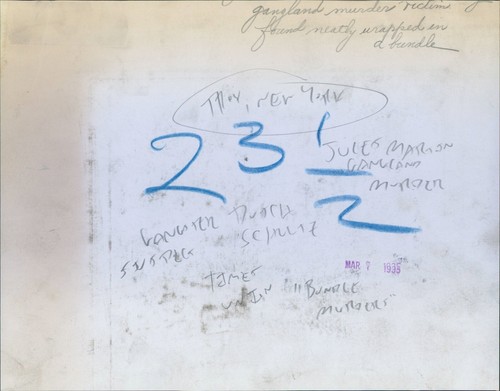 gangland murder victims
found neatly wrapped in
a bundle
Troy, NEW YORK
23 1/2
JULES MARTIN
GANGLAND
MURDER
GANGSTER DUTCH
SCHULTZ
TIMES
UNION "BUNDLE
MURDERS"
MAR 7 1935